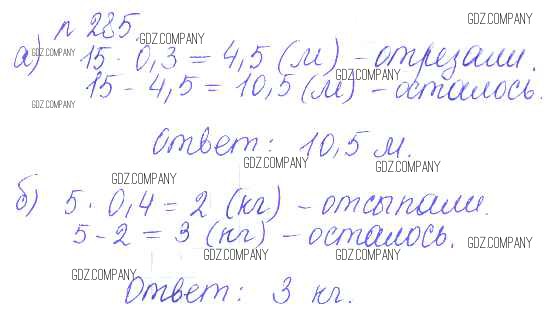 № 285.
GDZ.COMPANY GDZ.COMPANY
а) 15 · 0,3 = 4,5 (м) – отрезали.
GDZ.COMPANY GDZ.COMPANY
15 – 4,5 = 10,5 (м) – осталось.
GDZ.COMPANY
Ответ: 10,5 м.
GDZ.COMPANY GDZ.COMPANY
GDZ.COMPANY
б) 5 · 0,4 = 2 (кг) – отсыпали.
5 – 2 = 3 (кг) – осталось.
GDZ.COMPANY
GDZ.COMPANY GDZ.COMPANY
GDZ.COMPANY
Ответ: 3 кг.